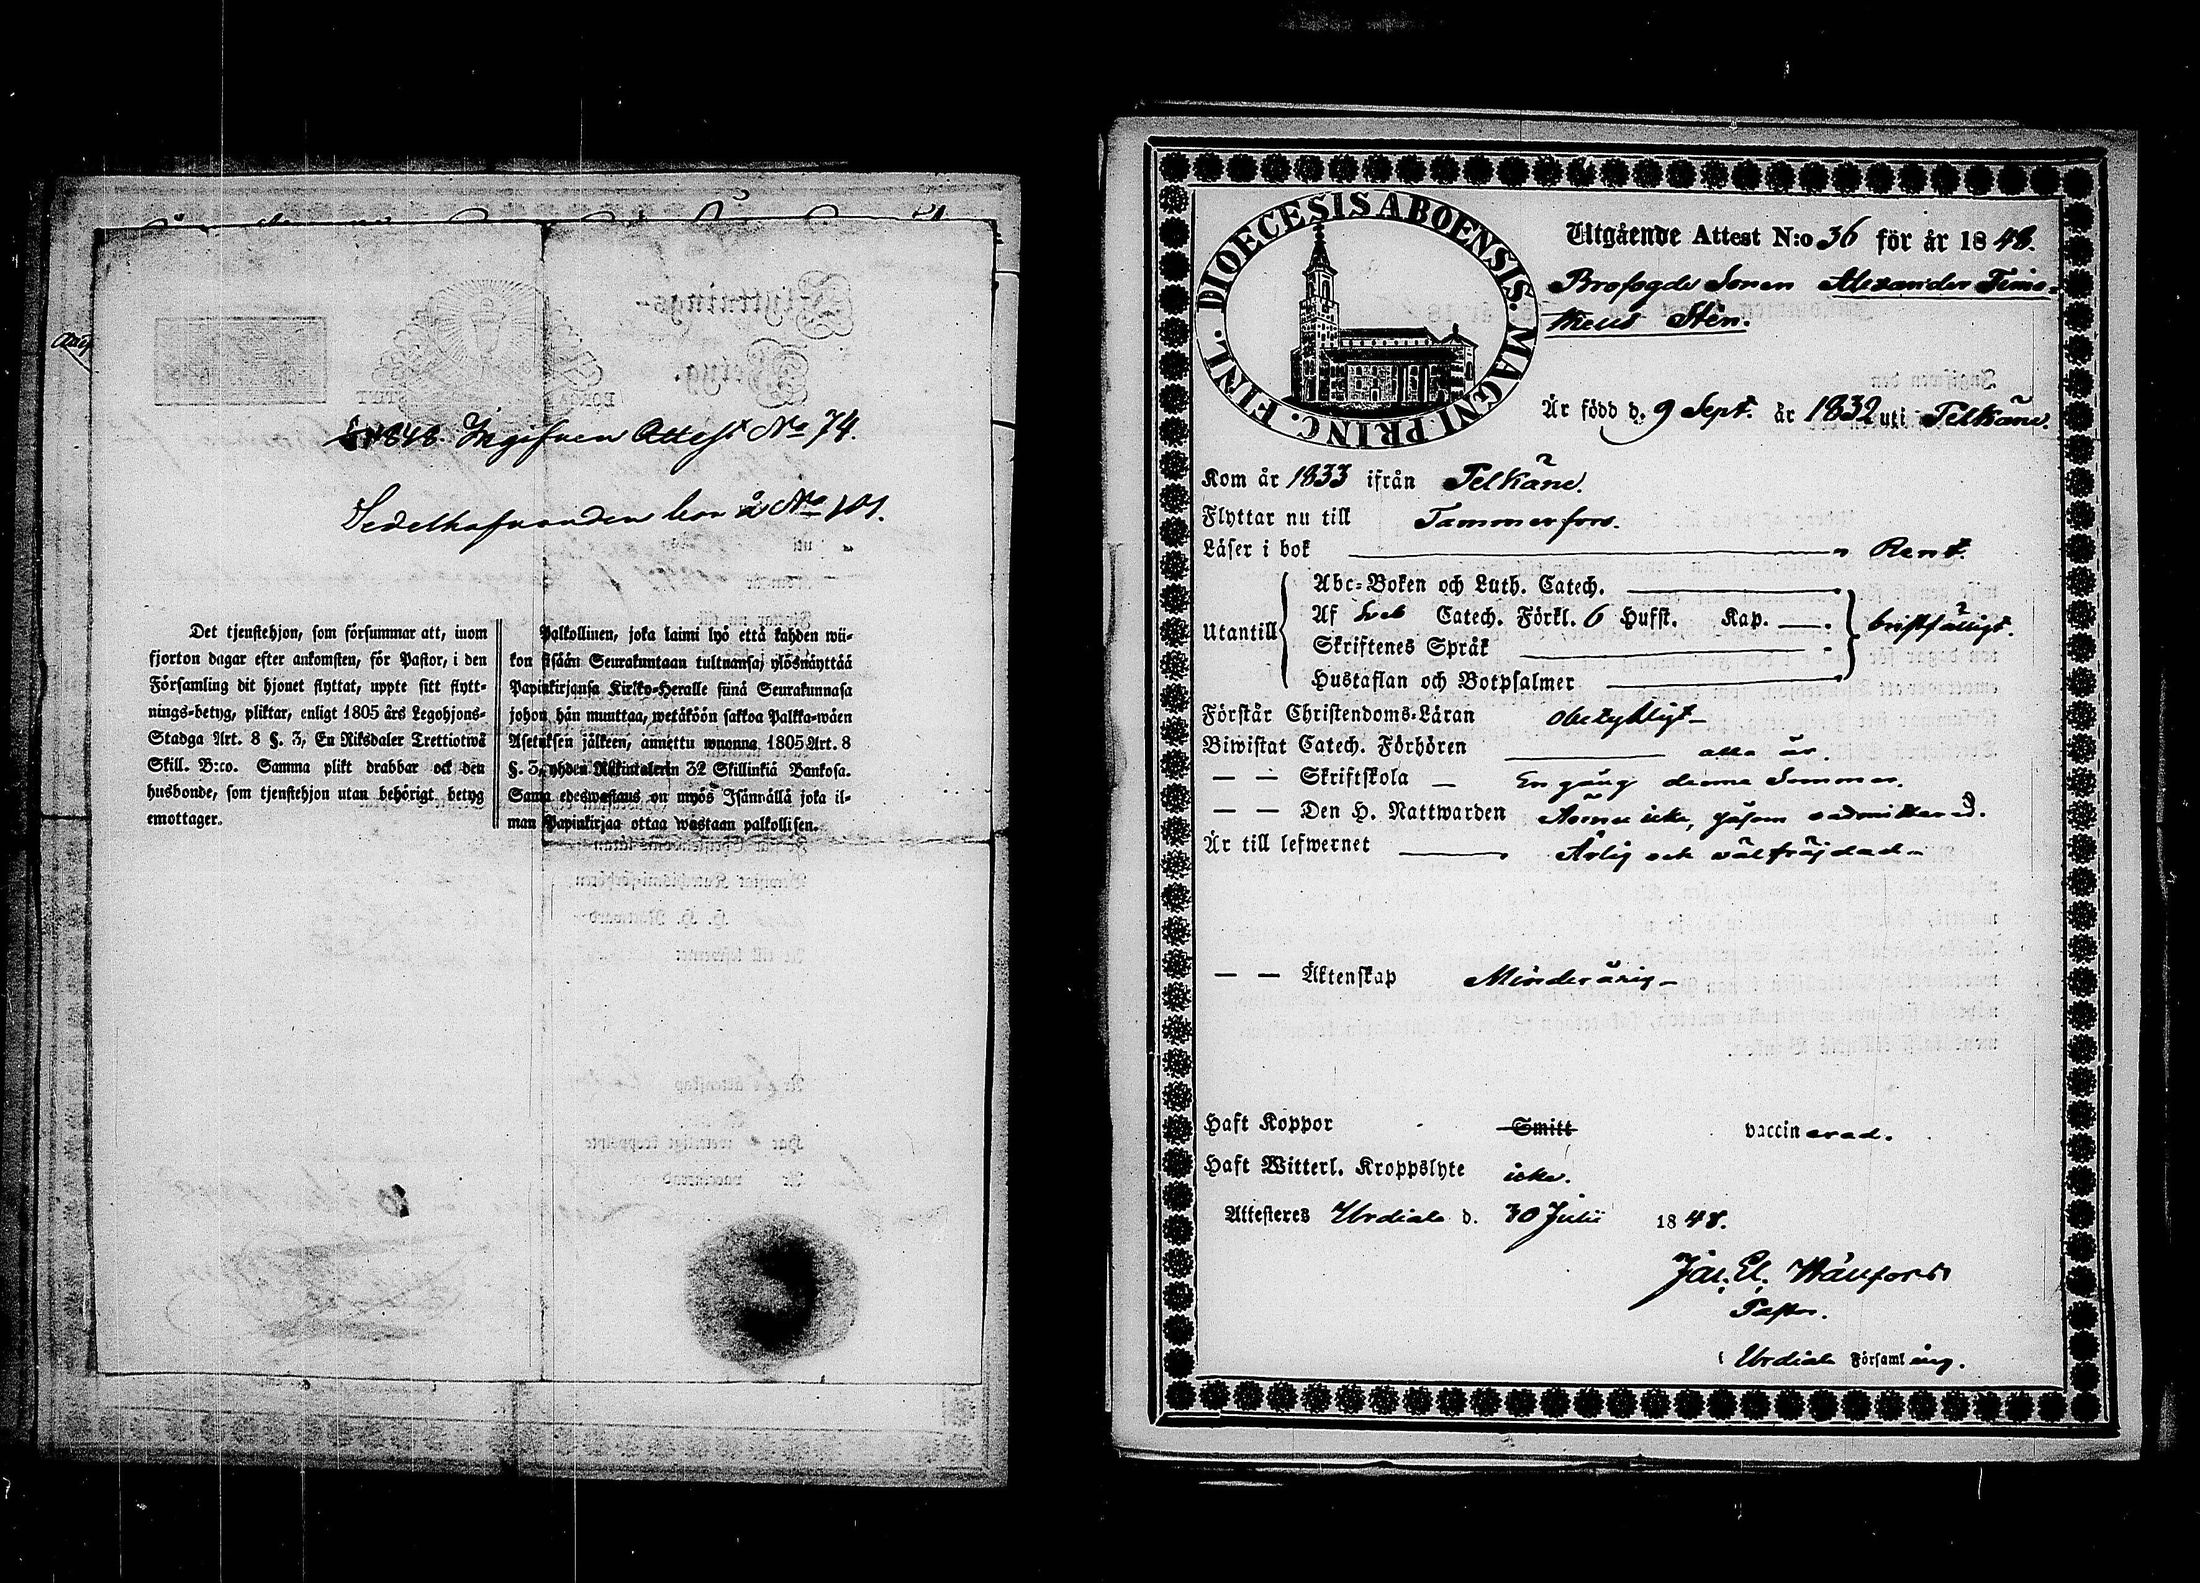 1848. Ingifven Attest No 74.
Sedelhafvanden bor å No 101.
Det tjenstehjon, som försummar att, inom
fjorton dagar efter ankomsten, för Pastor, i den
Församling dit hjonet flyttat, uppte sitt flytt-
nings-betyg, pliktar, enligt 1805 års Legohjons-
Stadga Art. 8 §. 3, En Riksdaler Trettiotwå
Skill. B:co. Samma plikt drabbar ock den
husbonde, som tjenstehjon utan behörigt betyg
emottager.
Palkollinen, joka laimi lyö että kahden wii-
kon sisään Seurakuntaan tultuansa, ylösnäyttää
Papinkirjansa Kirkko-Herralle siinä Seurakunnasa
johon hän muuttaa, wetäköön sakkoa Palkka-wäen
Asetuksen jälkeen, annettu wuonna 1805 Art. 8
§. 3, yhden Riikintalerin 32 Skillinkiä Bankosa.
Sama edeswastaus on myös Isännällä joka il-
man Papinkirjaa ottaa wastaan palkollisen.
DIOECESIS ABOENSIS. MAGNI PRINC. FINL.
Utgående Attest N:o 36 för år 1848.
Brofogde Sonen Alexander Timo-
theus Sten.
Är född d. 9 Sept. år 1832 uti Pelkäne.
Kom år 1833 ifrån Pelkäne.
Flyttar nu till Tammerfors.
Läser i bok Rent.
Abc-Boken och Luth. Catech.
Utantill Af Sveb Catech. Förkl. 6 Hufst. Kap. bristfälligt.
Skriftenes Språk
Hustaflan och Botpsalmer
Förstår Christendoms-Läran obetydligt
Biwistat Catech. Förhören alla år.
— — Skriftskola — En gång denna Sommar.
— — Den H. Nattwarden Ännu icke, såsom oadmitterad.
Är till lefwernet Ärlig och välfräjdad
— — Äktenskap Minderårig
Haft Koppor Smitt vaccinerad.
Haft Witterl. Kroppslyte icke.
Attesteres Urdiala d. 30 Julii 1848.
Pastor.
i Urdiala Församling.